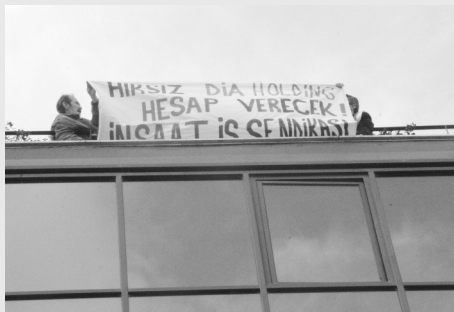 HIRSIZ DİA HOLDİNG
HESAP VERECEK!
İNŞAAT İŞ SENDİKASI